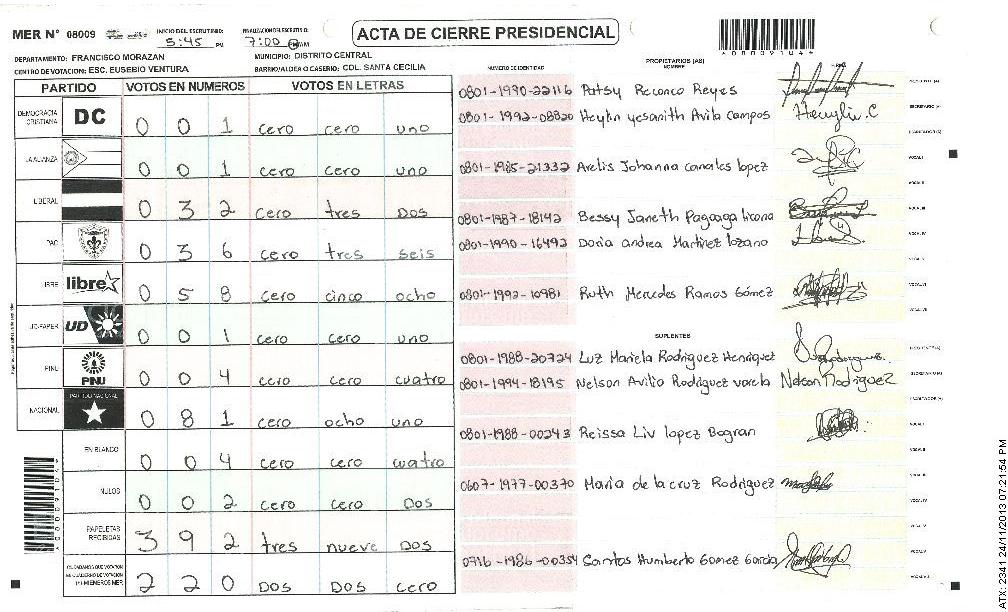 MER N° 08009
INICIO DEL ESCRUTINIO: 5:45 PM
FINALIZACION DEL ESCRUTINIO: 7:00 PM AM
ACTA DE CIERRE PRESIDENCIAL
DEPARTAMENTO: FRANCISCO MORAZAN
MUNICIPIO: DISTRITO CENTRAL
CENTRO DE VOTACION: ESC. EUSEBIO VENTURA
BARRIO/ALDEA O CASERIO: COL. SANTA CECILIA
PARTIDO VOTOS EN NUMEROS VOTOS EN LETRAS
DEMOCRACIA CRISTIANA DC 0 0 1 cero cero uno
LA ALIANZA 0 0 1 cero cero uno
LIBERAL 0 3 2 cero tres Dos
PAC 0 3 6 cero tres seis
LIBRE libre 0 5 8 cero cinco ocho
UD-FAPER UD 0 0 1 cero cero uno
PINU PINU 0 0 4 cero cero cuatro
NACIONAL PARTIDO NACIONAL 0 8 1 cero ocho uno
EN BLANCO 0 0 4 cero cero cuatro
NULOS 0 0 2 cero cero Dos
PAPELETAS RECIBIDAS 3 9 2 tres nueve Dos
CIUDADANOS QUE VOTARON 2 2 0 Dos Dos cero
NUMERO DE IDENTIDAD PROPIETARIOS (AS) NOMBRE
0801-1990-22116 Patsy Reconco Reyes
0801-1992-08820 Heylin yesanith Avila campos Heylin.C
0801-1985-21332 Arelis Johanna canales lopez
0801-1987-18142 Bessy Janeth Pagoaga licona
0801-1990-16492 Doria andrea Martinez lozano
0801-1992-10981 Ruth Mercedes Ramos Gómez
SUPLENTES
0801-1988-20724 Luz Mariela Rodriguez Henriquez
0801-1994-18195 Nelson Avilio Rodriguez varela Nelson Rodriguez
0801-1988-00243 Reissa Liv lopez Bogran
0607-1977-00370 Maria de la cruz Rodriguez
0716-1986-00354 Santos Humberto Gomez Garcia
ATX: 2341 24/11/2013 07:21:54 PM